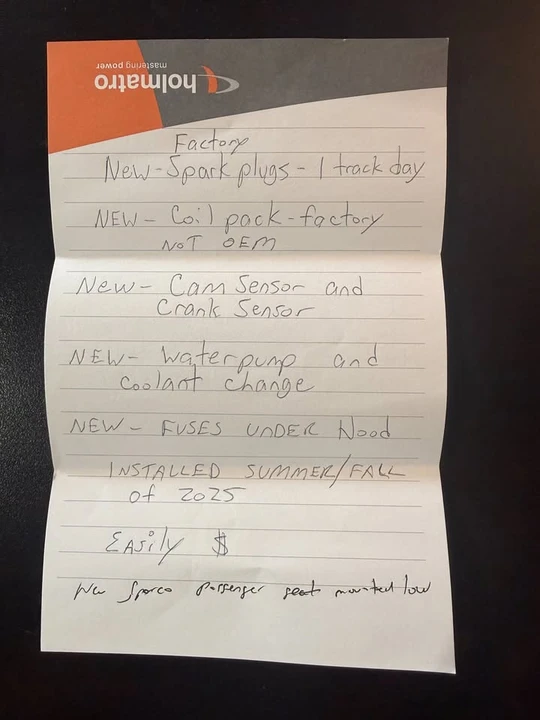 holmatro
mastering power
Factory
New - Spark plugs - 1 track day
NEW - Coil pack - factory
NOT OEM
New - Cam Sensor and
Crank Sensor
NEW - Water pump and
Coolant change
NEW - FUSES UNDER Hood
INSTALLED SUMMER/FALL
of 2025
EASily $
New Sparco Passenger seat mounted low